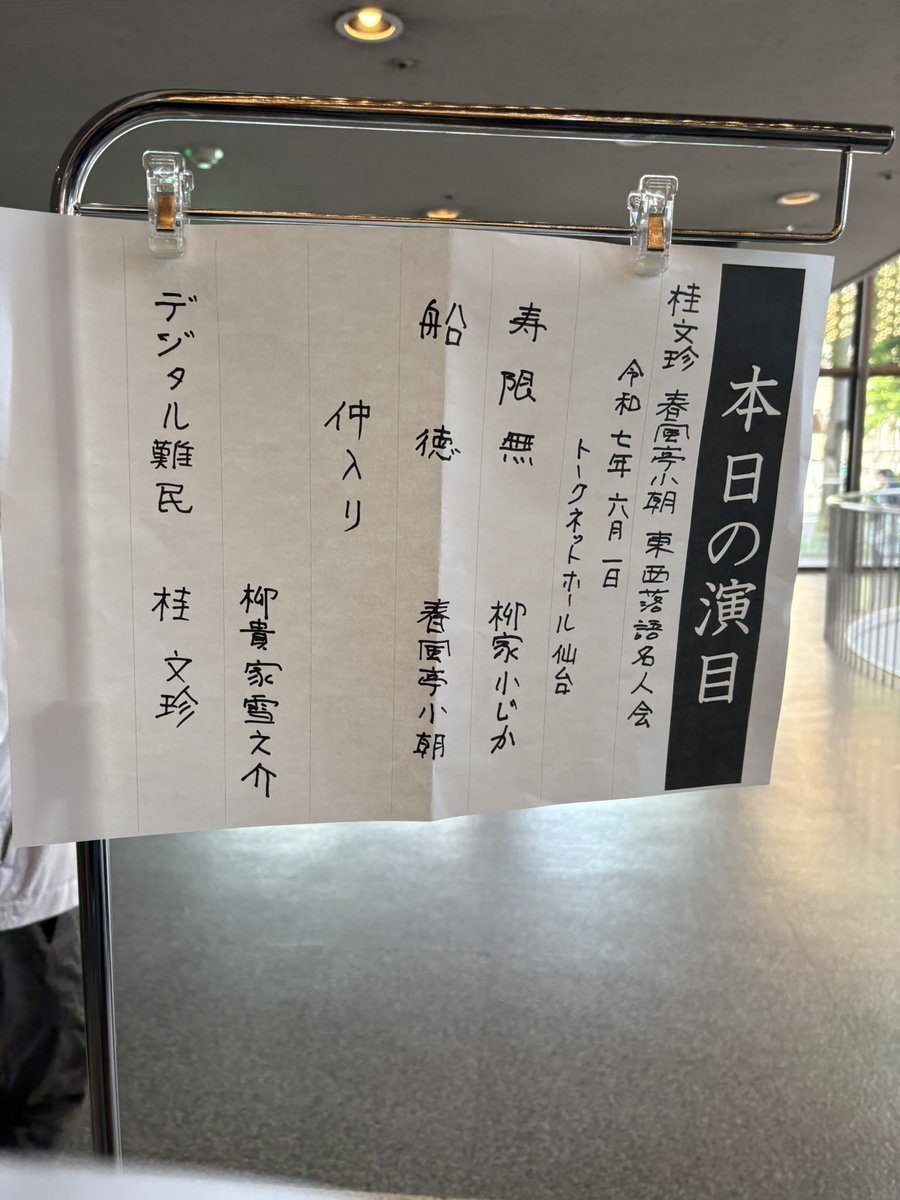 本日の演目
桂文珍 春風亭小朝 東西落語名人会
令和七年 六月一日
トークネットホール仙台
寿限無 柳家小じか
船徳 春風亭小朝
仲入り
柳貴家雪之介
デジタル難民 桂文珍